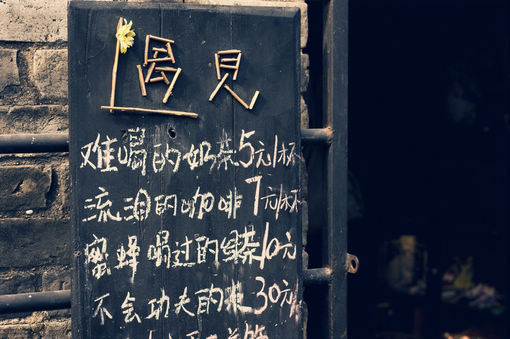 遇见
难喝的奶茶5元1杯
流泪的咖啡7元1杯
蜜蜂喝过的绿茶10元
不会功夫的 30元